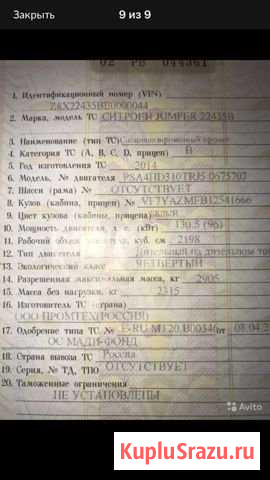 Закрыть
9 из 9
02 РВ 044361
1. Идентификационный номер (VIN)
Z8X22435BB0000044
2. Марка, модель ТС СИТРОЕН JUMPER 22435B
3. Наименование (тип ТС)
4. Категория ТС (А, В, С, D, прицеп) В
5. Год изготовления ТС 2014
6. Модель, № двигателя PSA4HD310TRJ5 0675702
7. Шасси (рама) № ОТСУТСТВУЕТ
8. Кузов (кабина, прицеп) № VF7YAZMFB12541666
9. Цвет кузова (кабины, прицепа)
10. Мощность двигателя, л. с. (кВт) 130.5 (96)
11. Рабочий объем двигателя, куб. см 2198
12. Тип двигателя
13. Экологический класс ЧЕТВЕРТЫЙ
14. Разрешенная максимальная масса, кг 2905
15. Масса без нагрузки, кг 2315
16. Изготовитель ТС (страна)
ООО ПРОМТЕХ(РОССИЯ)
17. Одобрение типа ТС № E-RU.MT20.B00346 от 08.04.2
ОС МАДИ-ФОНД
18. Страна вывоза ТС Россия
19. Серия, № ТД, ТПО ОТСУТСТВУЕТ
20. Таможенные ограничения
НЕ УСТАНОВЛЕНЫ
Avito
KupluSrazu.ru